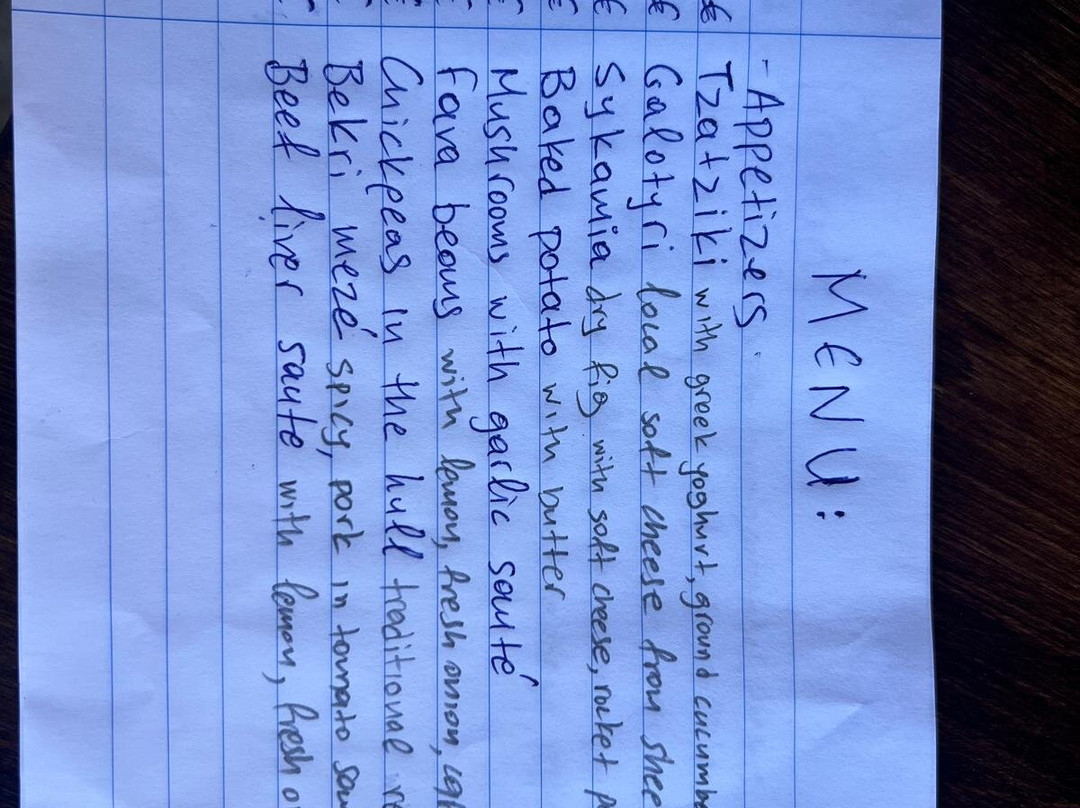 MENU:
- Appetizers
€ Tzatziki with greek yoghurt, ground
€ Galotyri local soft cheese from
€ Sykamia dry fig with soft cheese, rocket
€ Baked potato with butter
€ Mushrooms with garlic sauté
Fava beans with lemon, fresh onion,
Chickpeas in the hull traditional
Bekri mezé spicy, pork in tomato
Beef liver saute with lemon, fresh